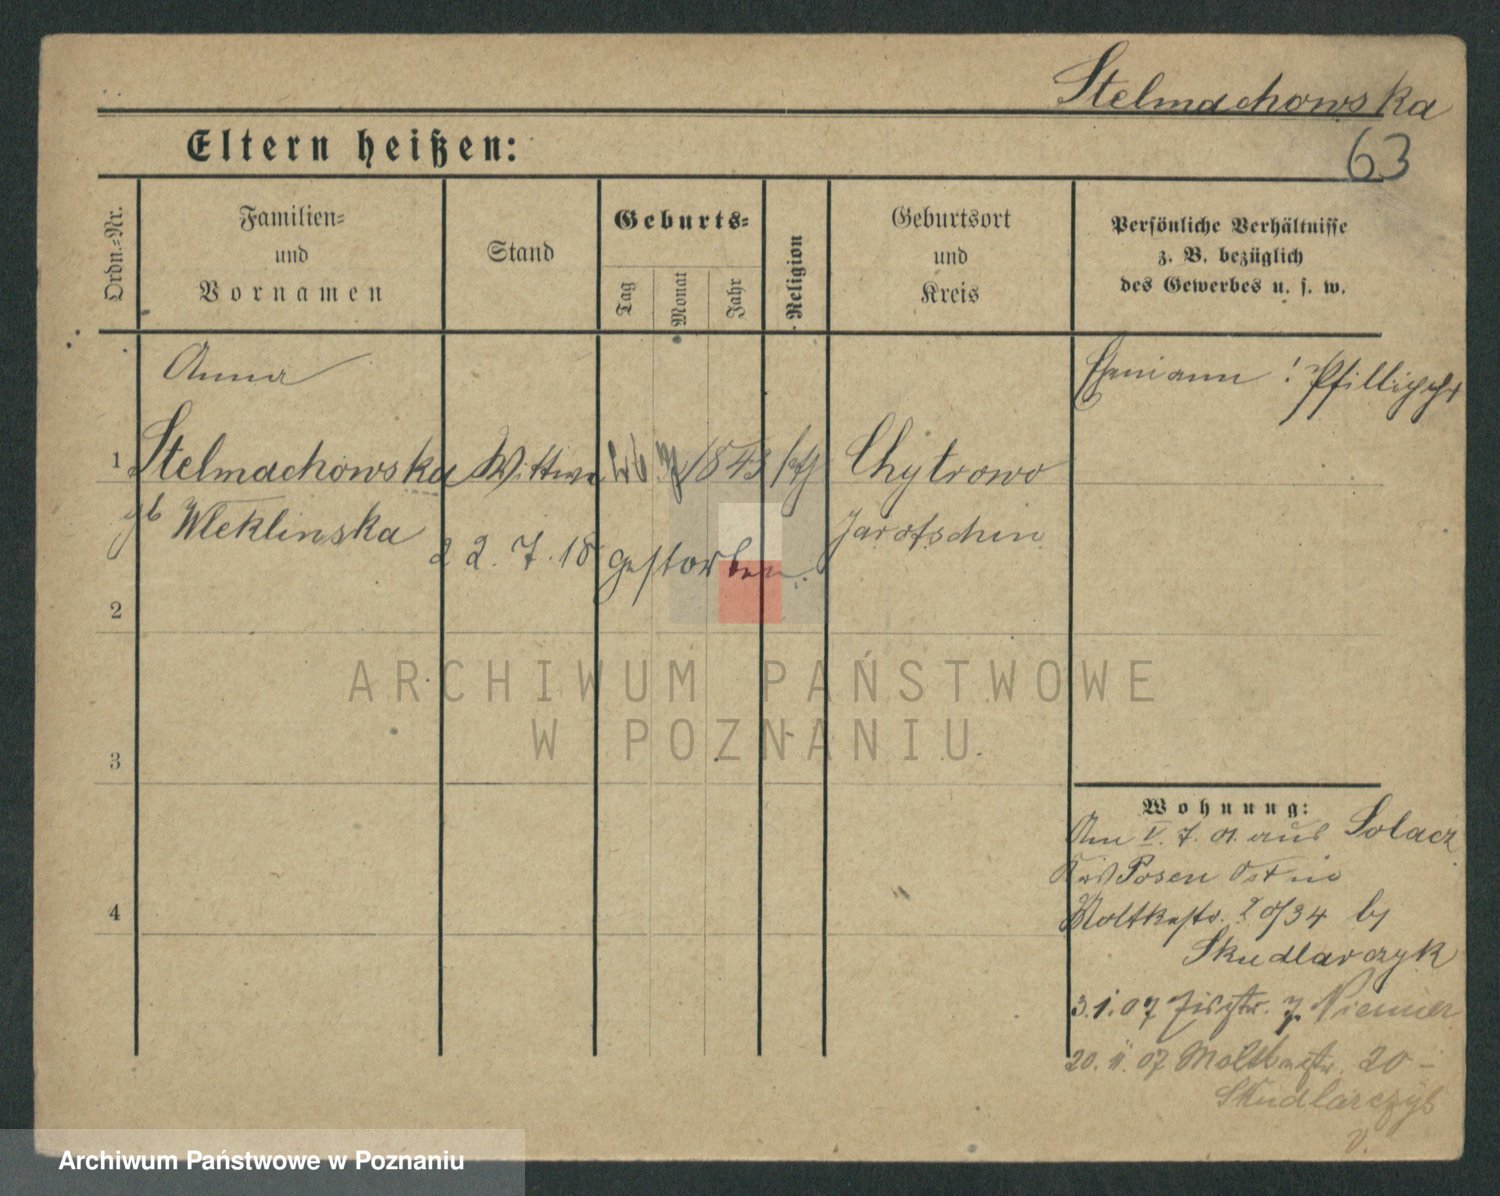 Stelmachowska
63
Eltern heißen:
Ordn.=Nr.
Familien=
und
Vornamen
Stand
Geburts=
Tag
Monat
Jahr
Religion
Geburtsort
und
Kreis
Persönliche Verhältnisse
z. B. bezüglich
des Gewerbes u. s. w.
Anna
Ehemann:
1 Stelmachowska Wittwe 26. 7. 1843 kth Chytrowo
gb Wleklinska Jarotschin
22. 7. 18 gestorben.
2
3
4
Wohnung:
Am V. 7. 01. aus Solacz
Kreis Posen Ost in
Moltkestr. 20/34 bj
Skudlarczyk
3.1.07 7
20. II. 07 Moltkestr. 20 -
Skudlarczyk
v.
ARCHIWUM PAŃSTWOWE
W POZNANIU
Archiwum Państwowe w Poznaniu